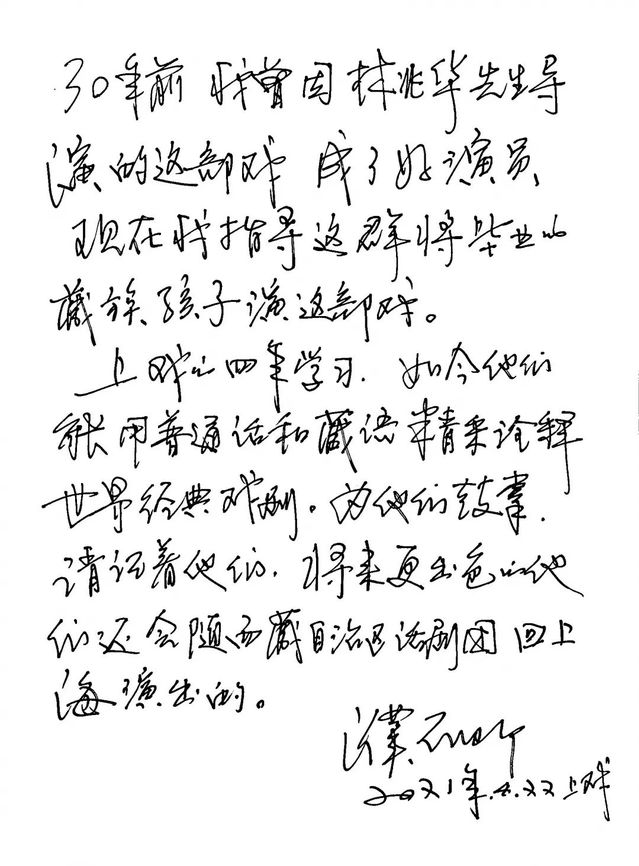 30年前 我曾因林兆华先生导
演的这部戏 成了好演员,
现在我指导这群将毕业的
藏族孩子演这部戏。
上戏的四年学习,如今他们
能用普通话和藏语精采诠释
世界经典戏剧。为他们鼓掌,
请记着他们,将来更出色的他
们还会随西藏自治区话剧团回上
海演出的。
濮存昕
2021年.4.22上戏